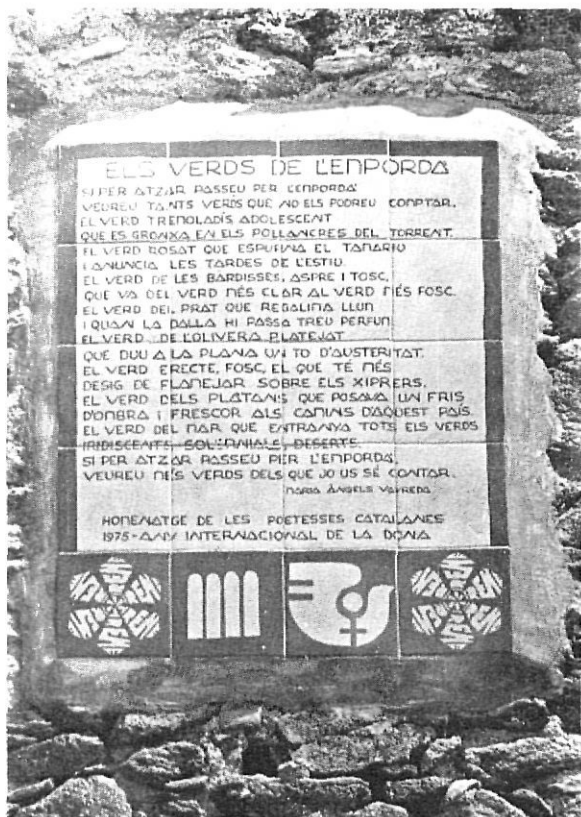 ELS VERDS DE L'EMPORDA
SI PER ATZAR PASSEU PER L'EMPORDA
VEUREU TANTS VERDS QUE NO ELS PODREU COMPTAR.
EL VERD TREMOLADÍS ADOLESCENT
QUE ES GRONXA EN ELS POLLANCRES DEL TORRENT.
EL VERD ROSAT QUE ESPURNA EL TAMARIU
I ANUNCIA LES TARDES DE L'ESTIU.
EL VERD DE LES BARDISSES, ASPRE I TOSC,
QUE VA DEL VERD MÉS CLAR AL VERD MÉS FOSC.
EL VERD DEL PRAT QUE REGALIMA LLUM
I QUAN LA DALLA HI PASSA TREU PERFUM.
EL VERD DE L'OLIVERA PLATEJAT
QUE DUU A LA PLANA UN TO D'AUSTERITAT.
EL VERD ERECTE, FOSC, EL QUE TÉ MÉS
DESIG DE FLAMEJAR SOBRE ELS XIPRERS.
EL VERD DELS PLATANS QUE POSAVA UN FRIS
D'OMBRA I FRESCOR ALS CAMINS D'AQUEST PAÍS.
EL VERD DEL MAR QUE ENTRANYA TOTS ELS VERDS
IRIDISCENTS SOLEMNIALS, DESERTS.
SI PER ATZAR PASSEU PER L'EMPORDA,
VEUREU MÉS VERDS DELS QUE JO US SÉ CONTAR.
MARIA ÀNGELS VAYREDA
HOMENATGE DE LES POETESSES CATALANES
1975-ANY INTERNACIONAL DE LA DONA